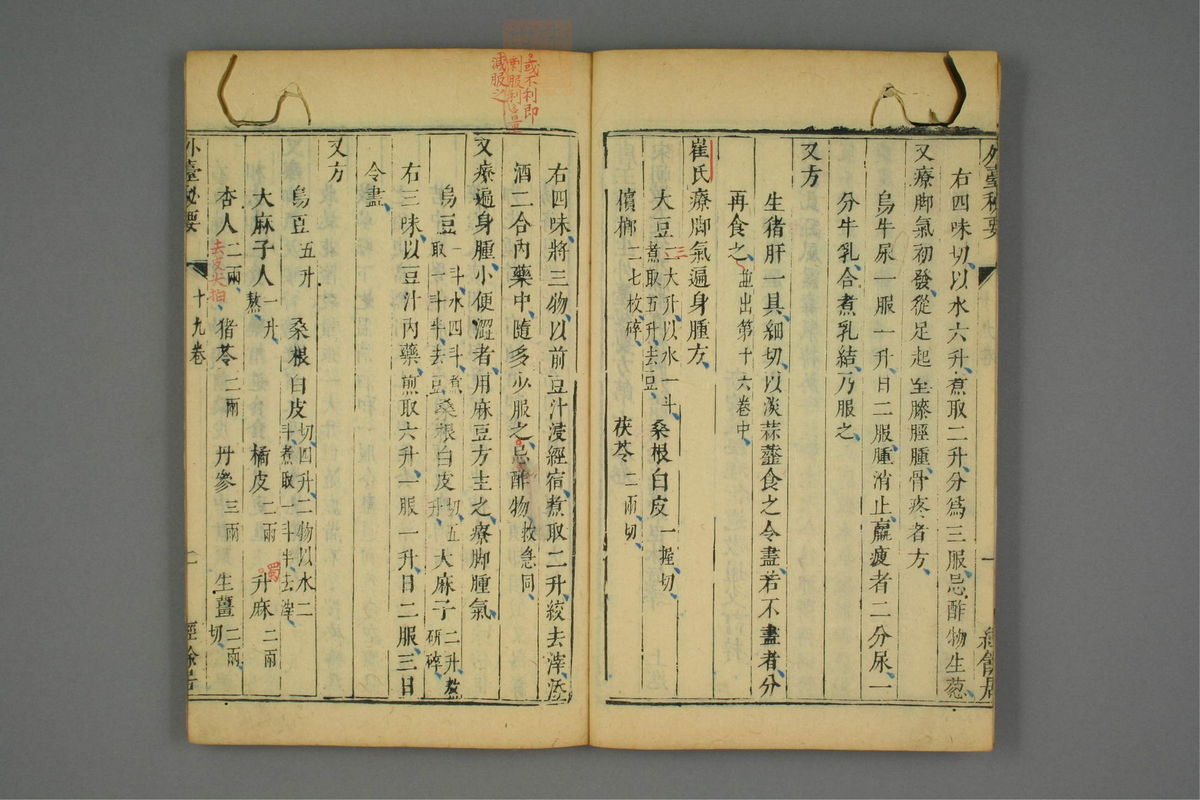 外臺秘要
一
經餘居
右四味切以水六升煮取二升分爲三服忌酢物生葱
又療脚氣初發從足起至膝脛腫骨疼者方
烏牛尿一服一升日二服腫消止羸瘦者二分尿一
分牛乳合煮乳結乃服之
又方
生猪肝一具細切以淡蒜虀食之令盡若不盡者分
再食之並出第十六卷中
崔氏療脚氣遍身腫方
大豆二大升以水一斗煮取五升去豆 桑根白皮一握切
三
檳榔二七枚碎 茯苓二兩切
右四味將三物以前豆汁浸經宿煮取二升絞去滓添
酒二合內藥中隨多少服之忌酢物救急同
或不利即
減服之
又療遍身腫小便澀者用麻豆方主之療脚腫氣
烏豆一斗水四斗煮取一斗半去豆 桑根白皮切五升 大麻子二升熬研碎
右三味以豆汁內藥煎取六升一服一升日二服三日
令盡
又方
烏豆五升 桑根白皮切四升二物以水二斗煮取一斗半去滓
大麻子人一升熬 橘皮二兩 升麻二兩
蜀
杏人二兩 猪苓二兩 丹參三兩 生薑二兩切
去皮尖
外臺秘要
十九卷
二
經餘居